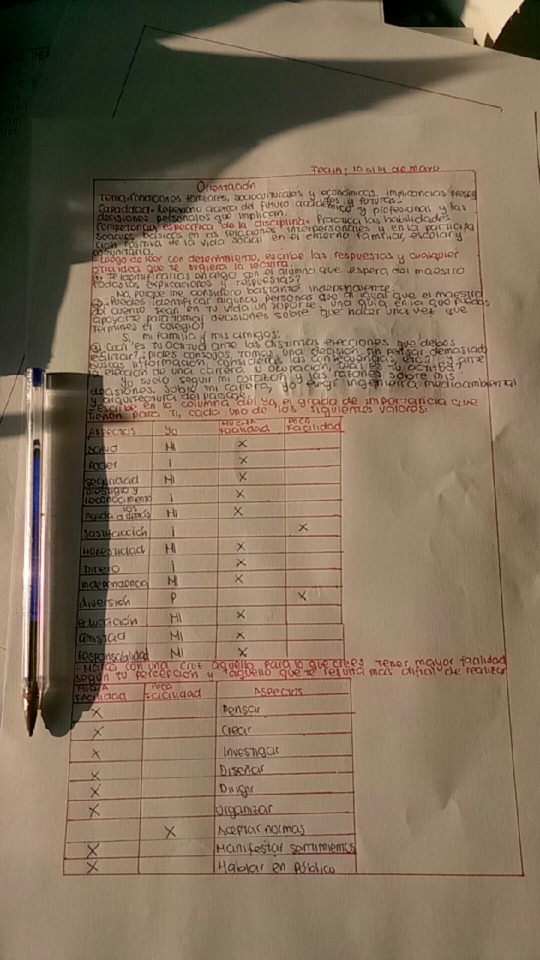 Fecha: 10 al 14 de Mayo
Orientación
Tema: Condiciones familiares, socioculturales y económicas. implicancias presen
Capacidad: Reflexiono acerca del futuro académico y profesional y las
decisiones personales que implican.
Competencia específica de la disciplina: Practica las habilidades
sociales básicas en las relaciones interpersonales y en la participa
ción positiva de la vida social en el entorno familiar, escolar y
comunitario.
-Luego de leer con detenimiento, escribe las respuestas y cualquier
otra idea que te sugiera la lectura.
① Te identificarías en algo con el alumno que espera del maestro
todas las explicaciones y respuestas?
No, porque me considero bastante independiente.
② Puedes identificar alguna persona que al igual que el maestro
del cuento sean en tu vida un soporte, una guía en la que puedas
apoyarte para tomar decisiones sobre que hacer una vez que
termines el colegio?
Si, mi familia y mis amigos.
③ Cuál es tu actitud ante las distintas elecciones que debes
realizar? ¿pides consejos, tomas una decisión sin pensar demasiado
buscas información, consideras las consecuencias, etc.? y ante
la elección de una carrera u ocupación, cuál es tu actitud?
Yo suelo seguir mi corazón y las razones sobre mis
decisiones. Sobre mi carrera, yo elegir ingeniería medioambiental
y arquitectura del paisaje.
-Escribe en la columna del Yo, el grado de importancia que
tienen para ti, cada uno de los siguientes valores:
Aspectos Yo Mucha Facilidad Poca Facilidad
Salud MI X
Poder I X
Seguridad MI X
Prestigio y reconocimiento I X
Ayuda a los demás MI X
Satisfacción I X
Honestidad MI X
Dinero I X
Independencia MI X
diversión P X
educación MI X
amistad MI X
responsabilidad MI X
- Marca con una cruz aquello para lo que crees tener mayor facilidad
según tu percepción y aquello que te resulta más difícil de realizar
Mucha Facilidad Poca Facilidad Aspectos
X Pensar
X Crear
X Investigar
X Diseñar
X Dirigir
X Organizar
X Aceptar normas
X Manifestar sentimientos
X Hablar en Público